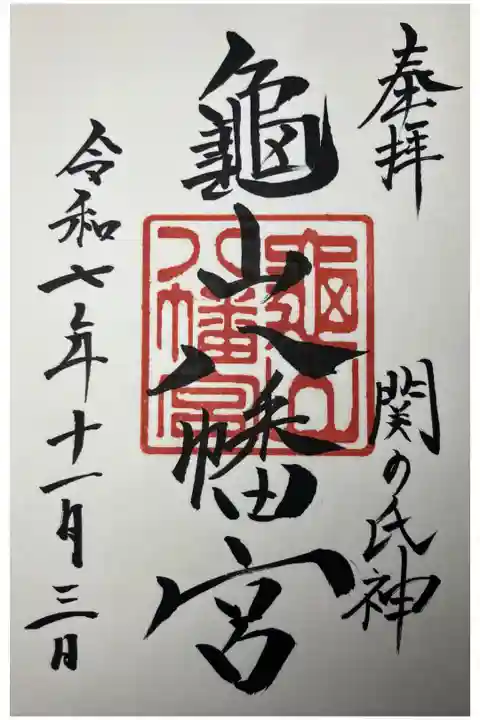 奉拝
関の氏神
龜山八幡宮
龜山
八幡宮
令和七年十一月三日